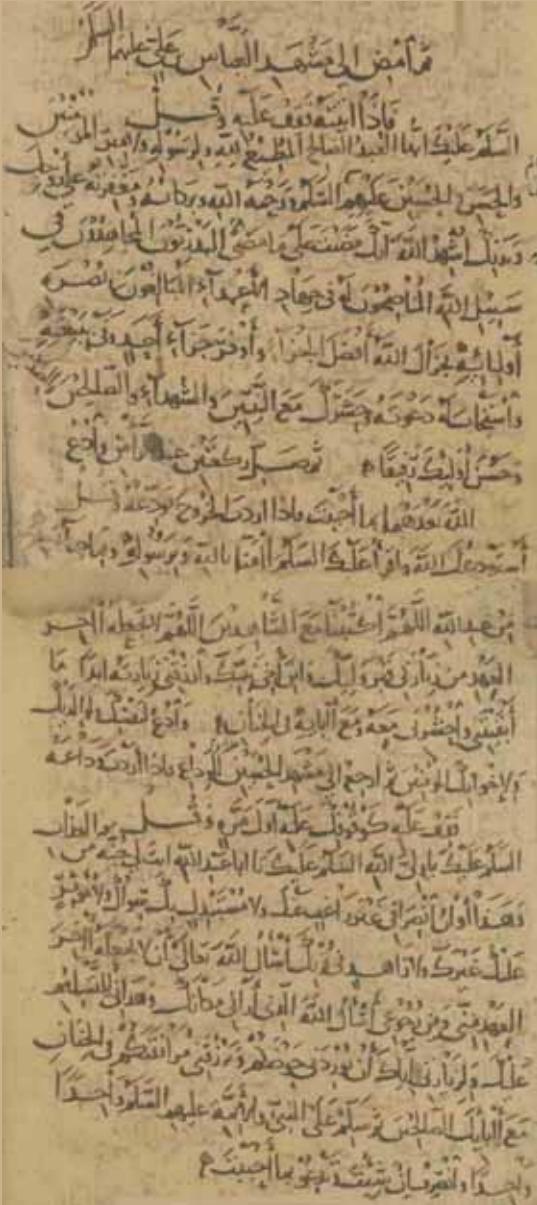 ثم امض إلى مشهد العباس بن علي عليهما السلم
فاذا اتيته فقف عليه وقل
السلم عليك ايها العبد الصالح المطيع لله ولرسوله ولامير المؤمنين
والحسن والحسين عليهم السلم ورحمة الله وبركاته ومغفرته على روحك
وبدنك اشهد الله انك مضيت على ما مضى البدريون المجاهدون في
سبيل الله المناصحون له في جهاد اعداءه المبالغون في نصرة
أوليائه فجزاك الله أفضل الجزاء وأوفر جزاء أحد وفى ببيعته
واستجاب له دعوته وحشرك مع النبيين والشهداء والصالحين
وحسن اوليك رفيقا ثم صل ركعتين عند الرأس وادع
الله بعدهما بما أحببت فاذا اردت الخروج فودعه وقل
أستودعك الله واقرأ عليك السلم آمنا بالله وبرسوله وبما جاء به
من عند الله اللهم اكتبنا مع الشاهدين اللهم لا تجعله اخر
العهد من زيارتي قبر وليك وابن أخي نبيك وارزقني زيارته ابدا ما
أبقيتني واحشرني معه ومع آبائه في الجنان وادع لنفسك ولوالديك
ولاخوانك المؤمنين ثم ارجع إلى مشهد الحسين للوداع فاذا أردت وداعه
فقف عليه كوقوفك عليه أول مرة وقل
السلم عليك يا ولي الله السلم عليك يا ابا عبد الله انت لي جنة من العذاب
وهذا أوان انصرافي غير راغب عنك ولا مستبدل بك سواك ولا مؤثر
عليك غيرك ولا زاهد في قربك أسأل الله تعالى أن لا يجعله اخر
العهد مني ومن رجوعي أسأل الله الذي أراني مكانك وهداني للتسليم
عليك ولزيارتي إياك أن يوردني حوضكم ويرزقني مرافقتكم في الجنان
مع آبائك الصالحين ثم سلم على النبي والأئمة عليهم السلم واحدا
واحدا وانصرف ان شئت وادع بما أحببت